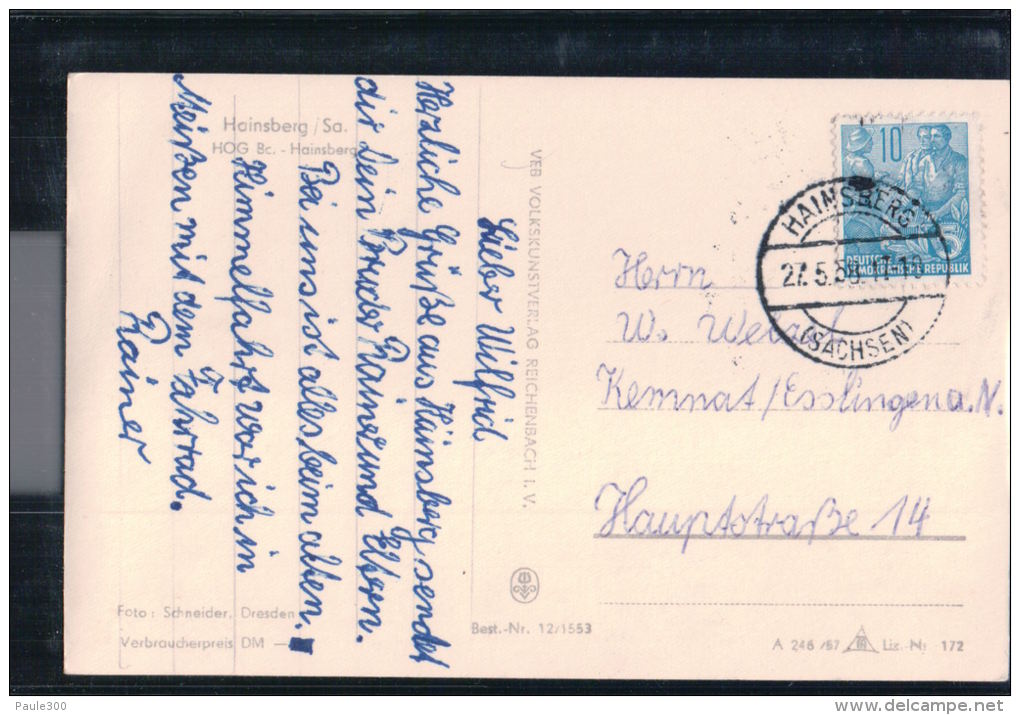 Hainsberg / Sa.
HOG Bc. - Hainsberg
Lieber Wilfrid
Herzliche Grüße aus Hainsberg, sendet
dir Dein Bruder Rainer und Eltern.
Bei uns ist alles beim alten.
Himmelfahrt war ich in
Meißen mit dem Fahrrad.
Rainer
VEB VOLKSKUNSTVERLAG REICHENBACH I. V.
10
DEUTSCHE
DEMOKRATISCHE REPUBLIK
HAINSBERG
27.5.58
(SACHSEN)
Herrn
W.
Kemnat / Esslingen a. N.
Hauptstraße 14
Foto: Schneider, Dresden
Verbraucherpreis DM
Best.-Nr. 12/1553
A 246/57
Liz.-Nr. 172
Paule300
www.delcampe.net